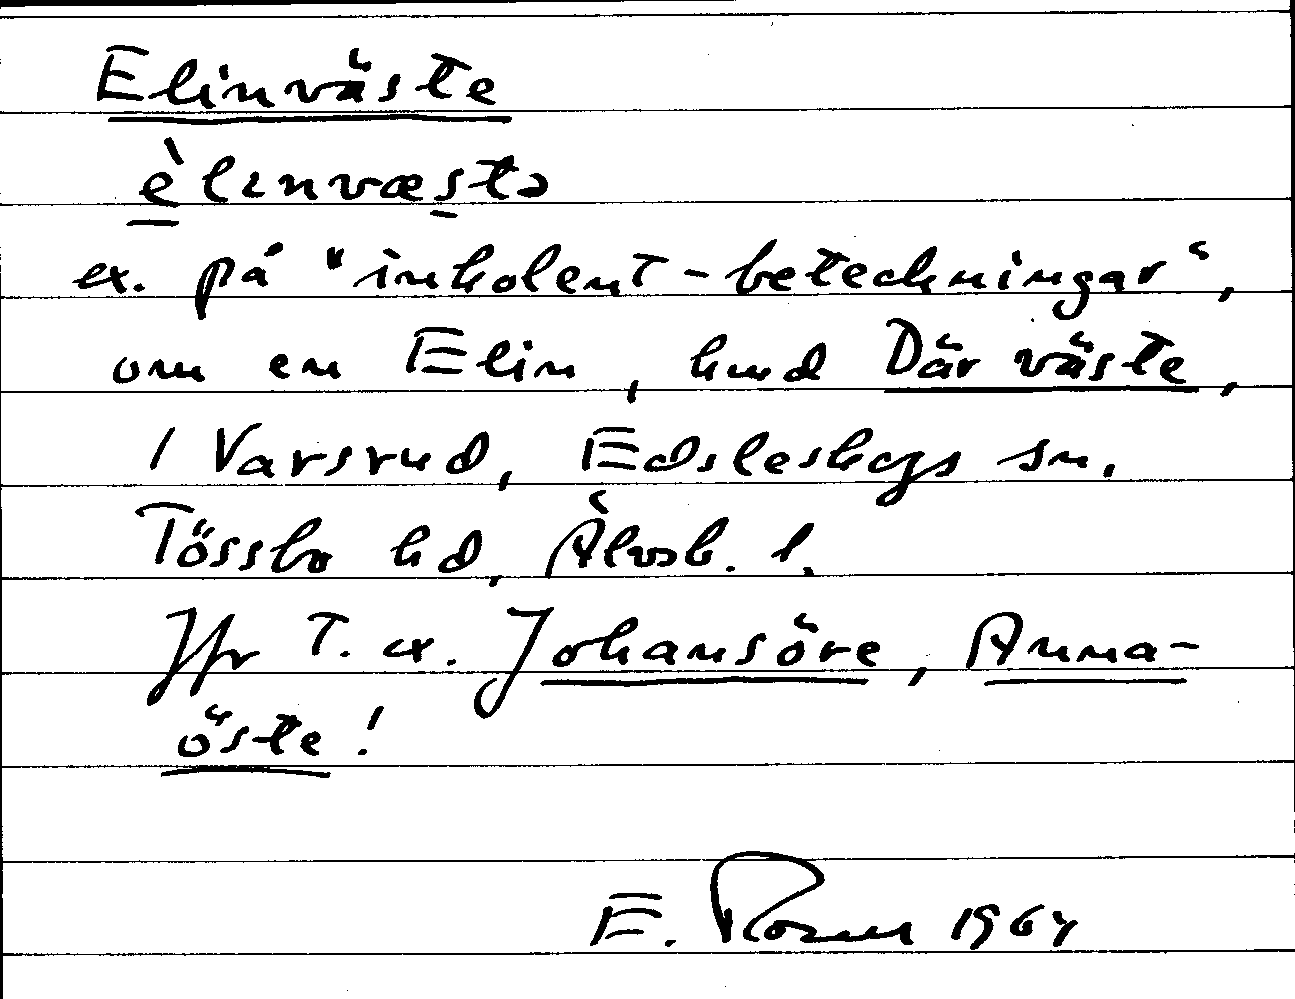 Elinväste
èlɪnvæstə
ex. på "inkolent-beteckningar",
om en Elin, hmd Där väste,
i Varsrud, Edsleskogs sn.
Tössbo hd, Älvsb. l.
Jfr t. ex. Johansöre, Anna-
öste!
E. Rosell 1964